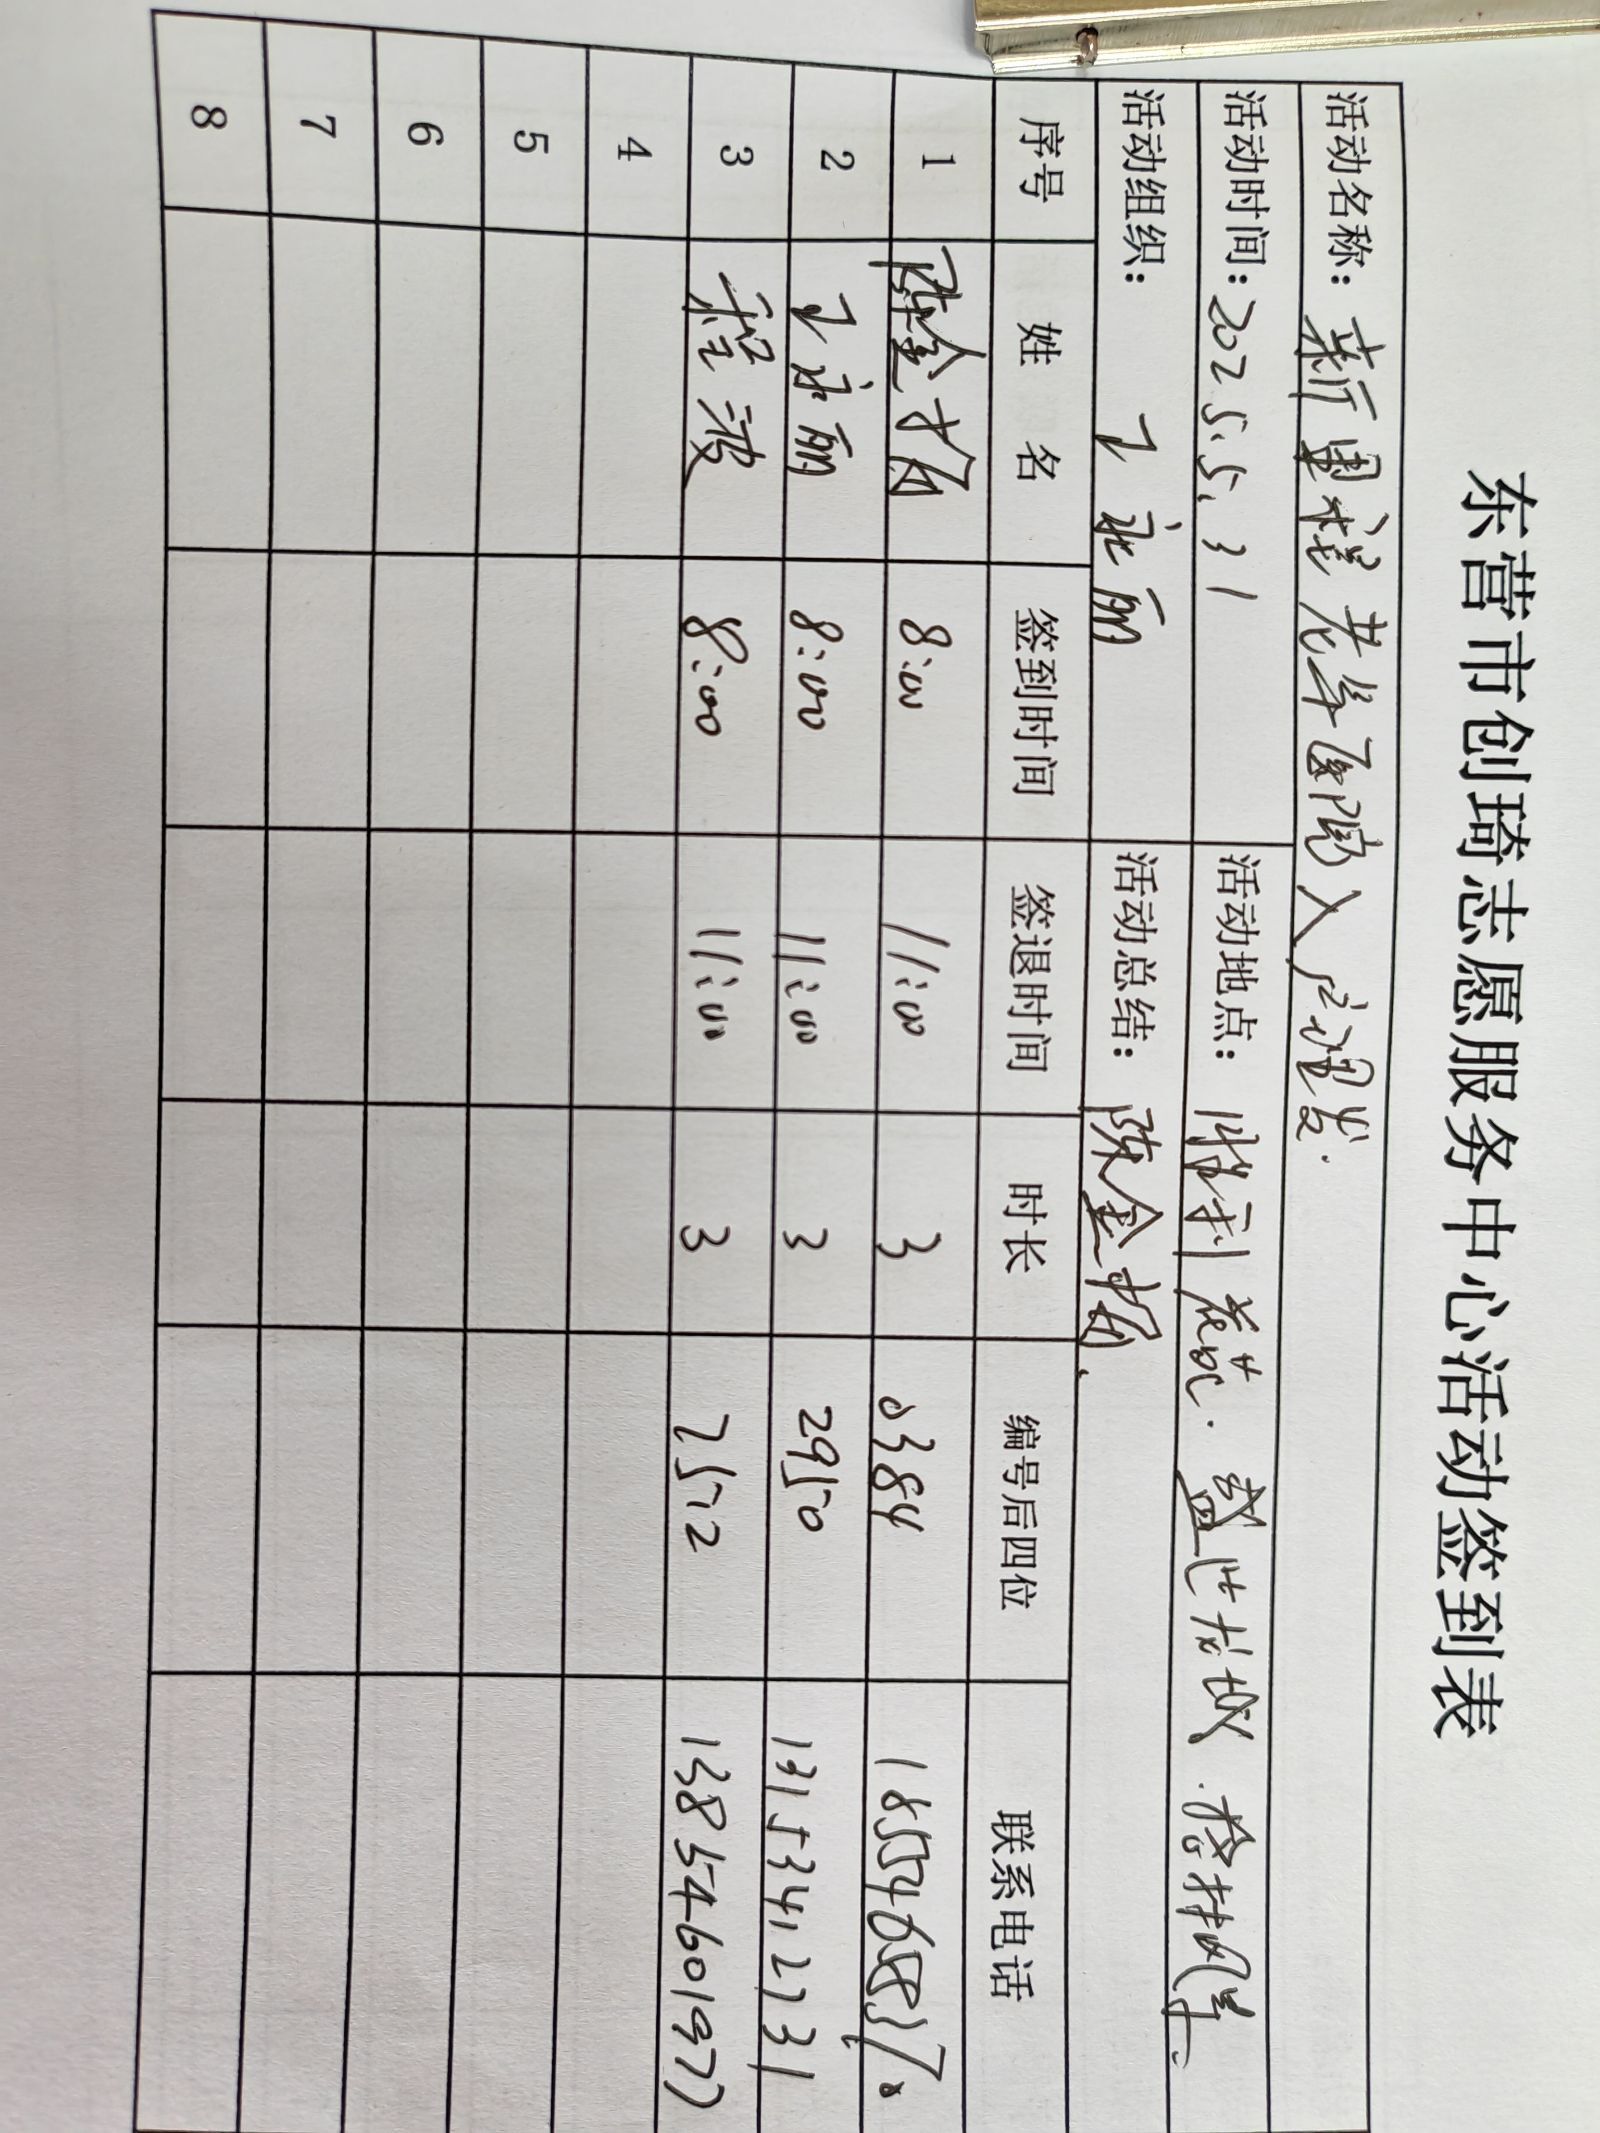 东营市创琦志愿服务中心活动签到表
活动名称: 新里程老年医院入户理发.
活动时间: 2025.5.31 活动地点: 胜利花苑. 盛世龙城.
活动组织: 王永丽 活动总结: 陈金
序号 姓名 签到时间 签退时间 时长 编号后四位 联系电话
1 陈金 8:00 11:00 3 0384
2 王永丽 8:00 11:00 3 2950
3 程波 8:00 11:00 3 2512
4
5
6
7
8